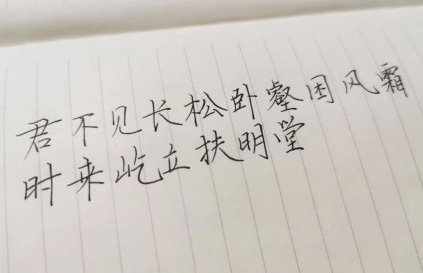 君不见长松卧壑困风霜
时来屹立扶明堂